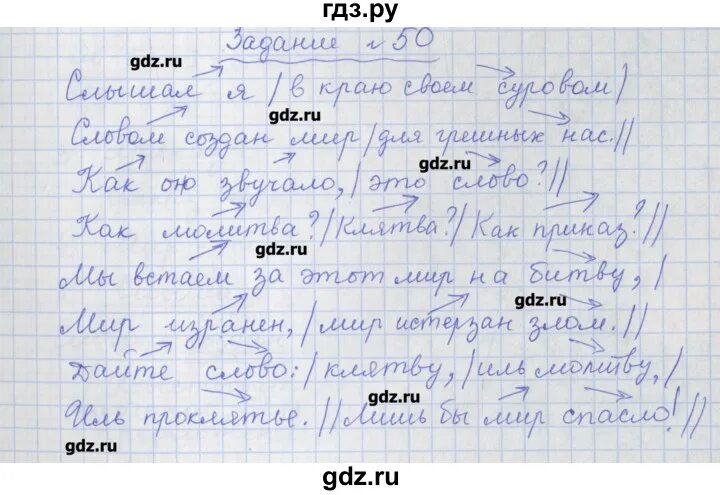 гдз.ру
Задание №50
gdz.ru
Слышал я / в краю своем суровом /
gdz.ru
Словом создан мир / для грешных нас. //
gdz.ru
Как оно звучало, / это слово? //
gdz.ru
Как молитва? / Клятва? / Как приказ? //
gdz.ru
Мы встаем за этот мир на битву, /
gdz.ru
Мир изранен, / мир истерзан злом. //
gdz.ru
Дайте слово: / клятву, / иль молитву, /
gdz.ru
Иль проклятье. // Лишь бы мир спасло! //
gdz.ru
gdz.ru